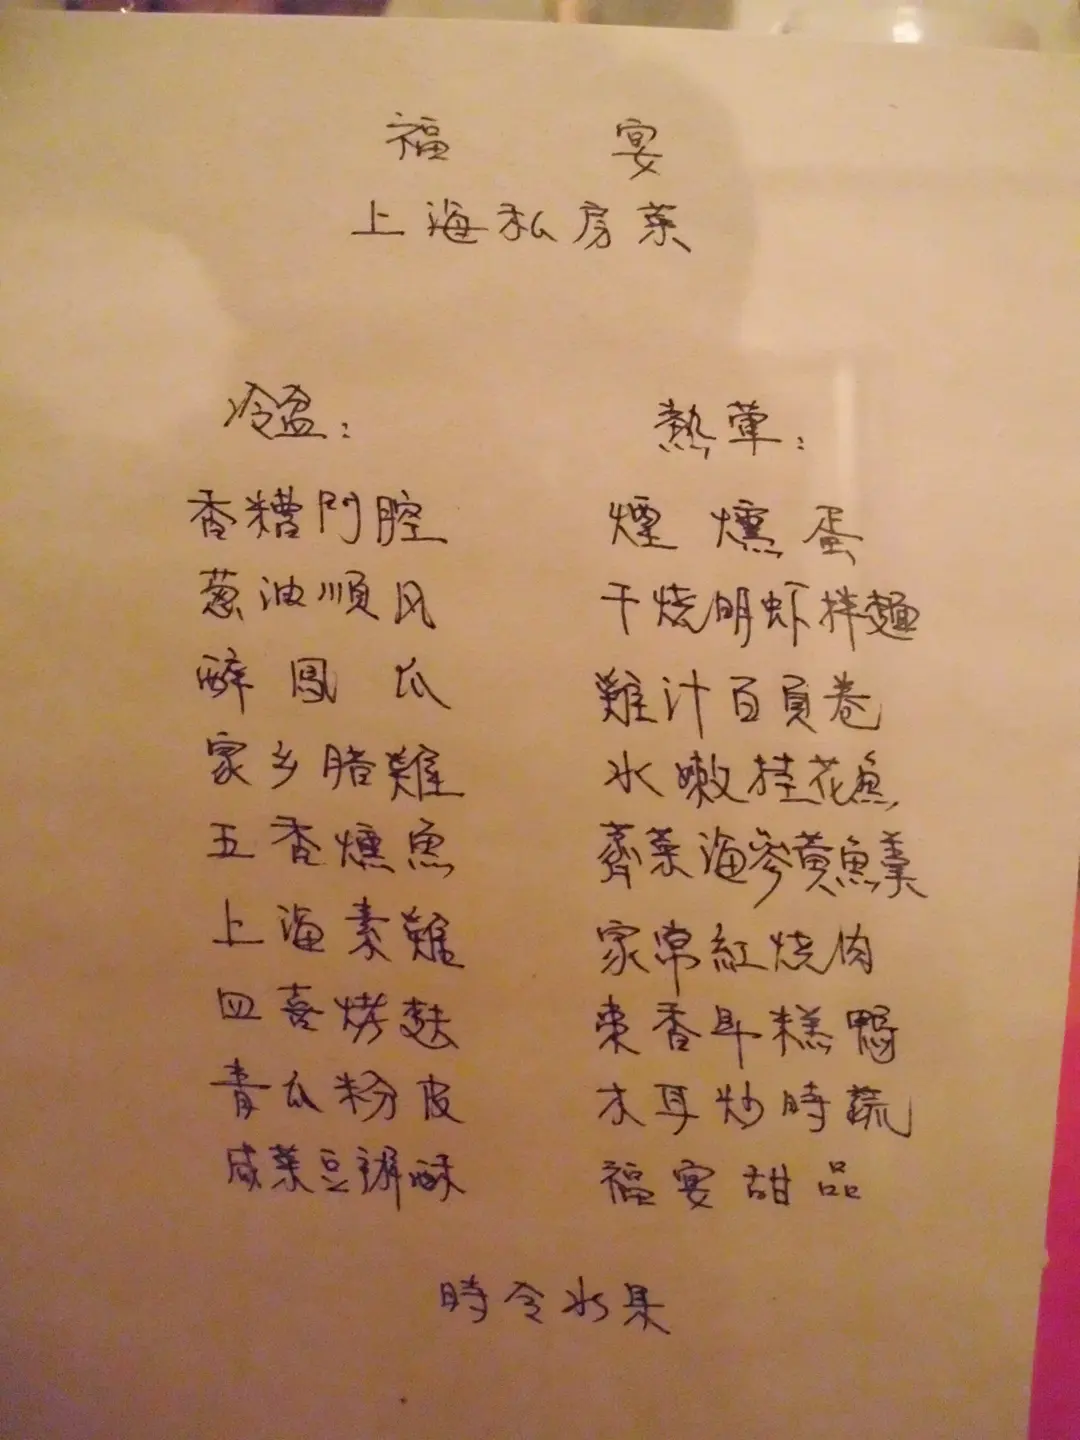 福宴
上海私房菜
冷盆：
香糟門腔
葱油順风
醉鳳爪
家乡腊雞
五香燻魚
上海素雞
四喜烤麩
青瓜粉皮
咸菜豆瓣酥
熱葷：
煙燻蛋
干烧明虾拌麵
雞汁百頁卷
水嫩桂花魚
薺菜海參黄魚羹
家常紅烧肉
棗香年糕鴨
木耳炒時蔬
福宴甜品
時令水果